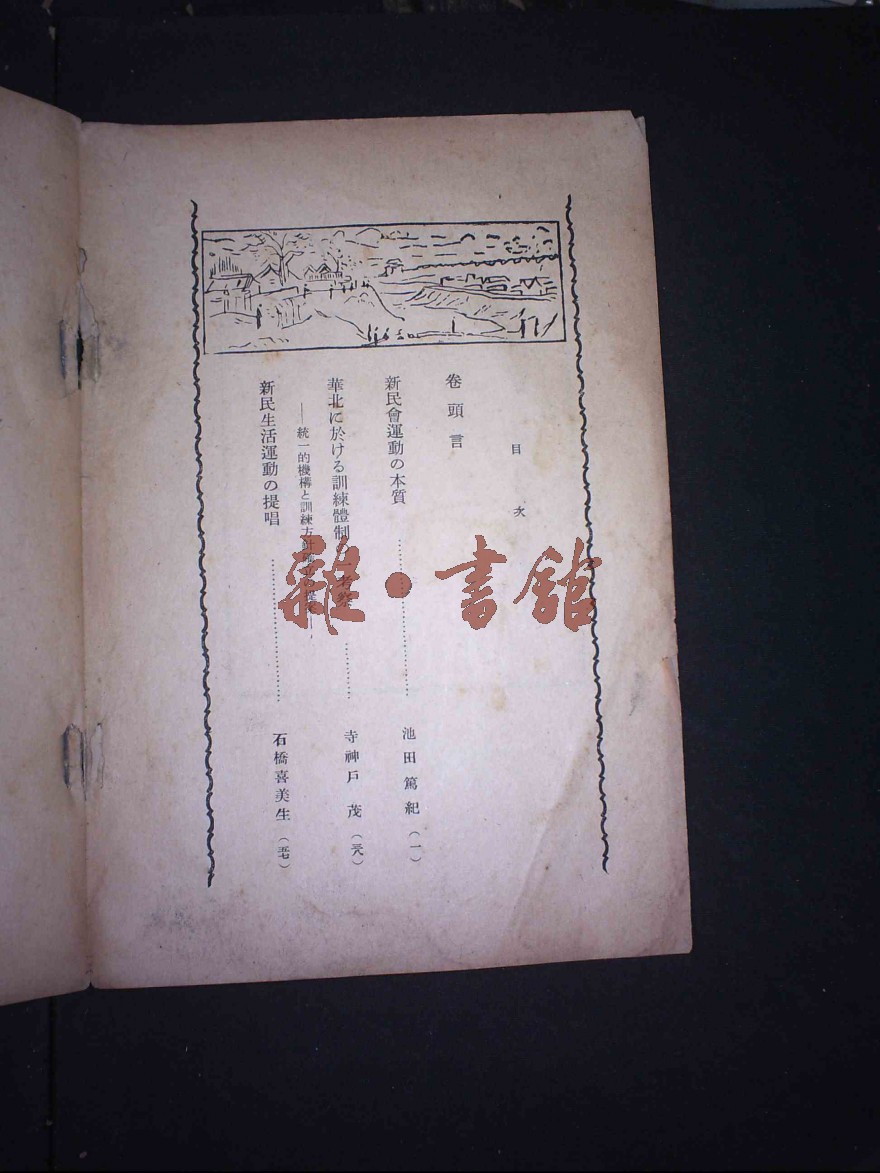 目次
卷頭言
新民會運動の本質 池田篤紀 (一)
華北に於ける訓練體制 考察 寺神戶茂 (三八)
——統一的機構と訓練方
新民生活運動の提唱 石橋喜美生 (五七)
雜·書館